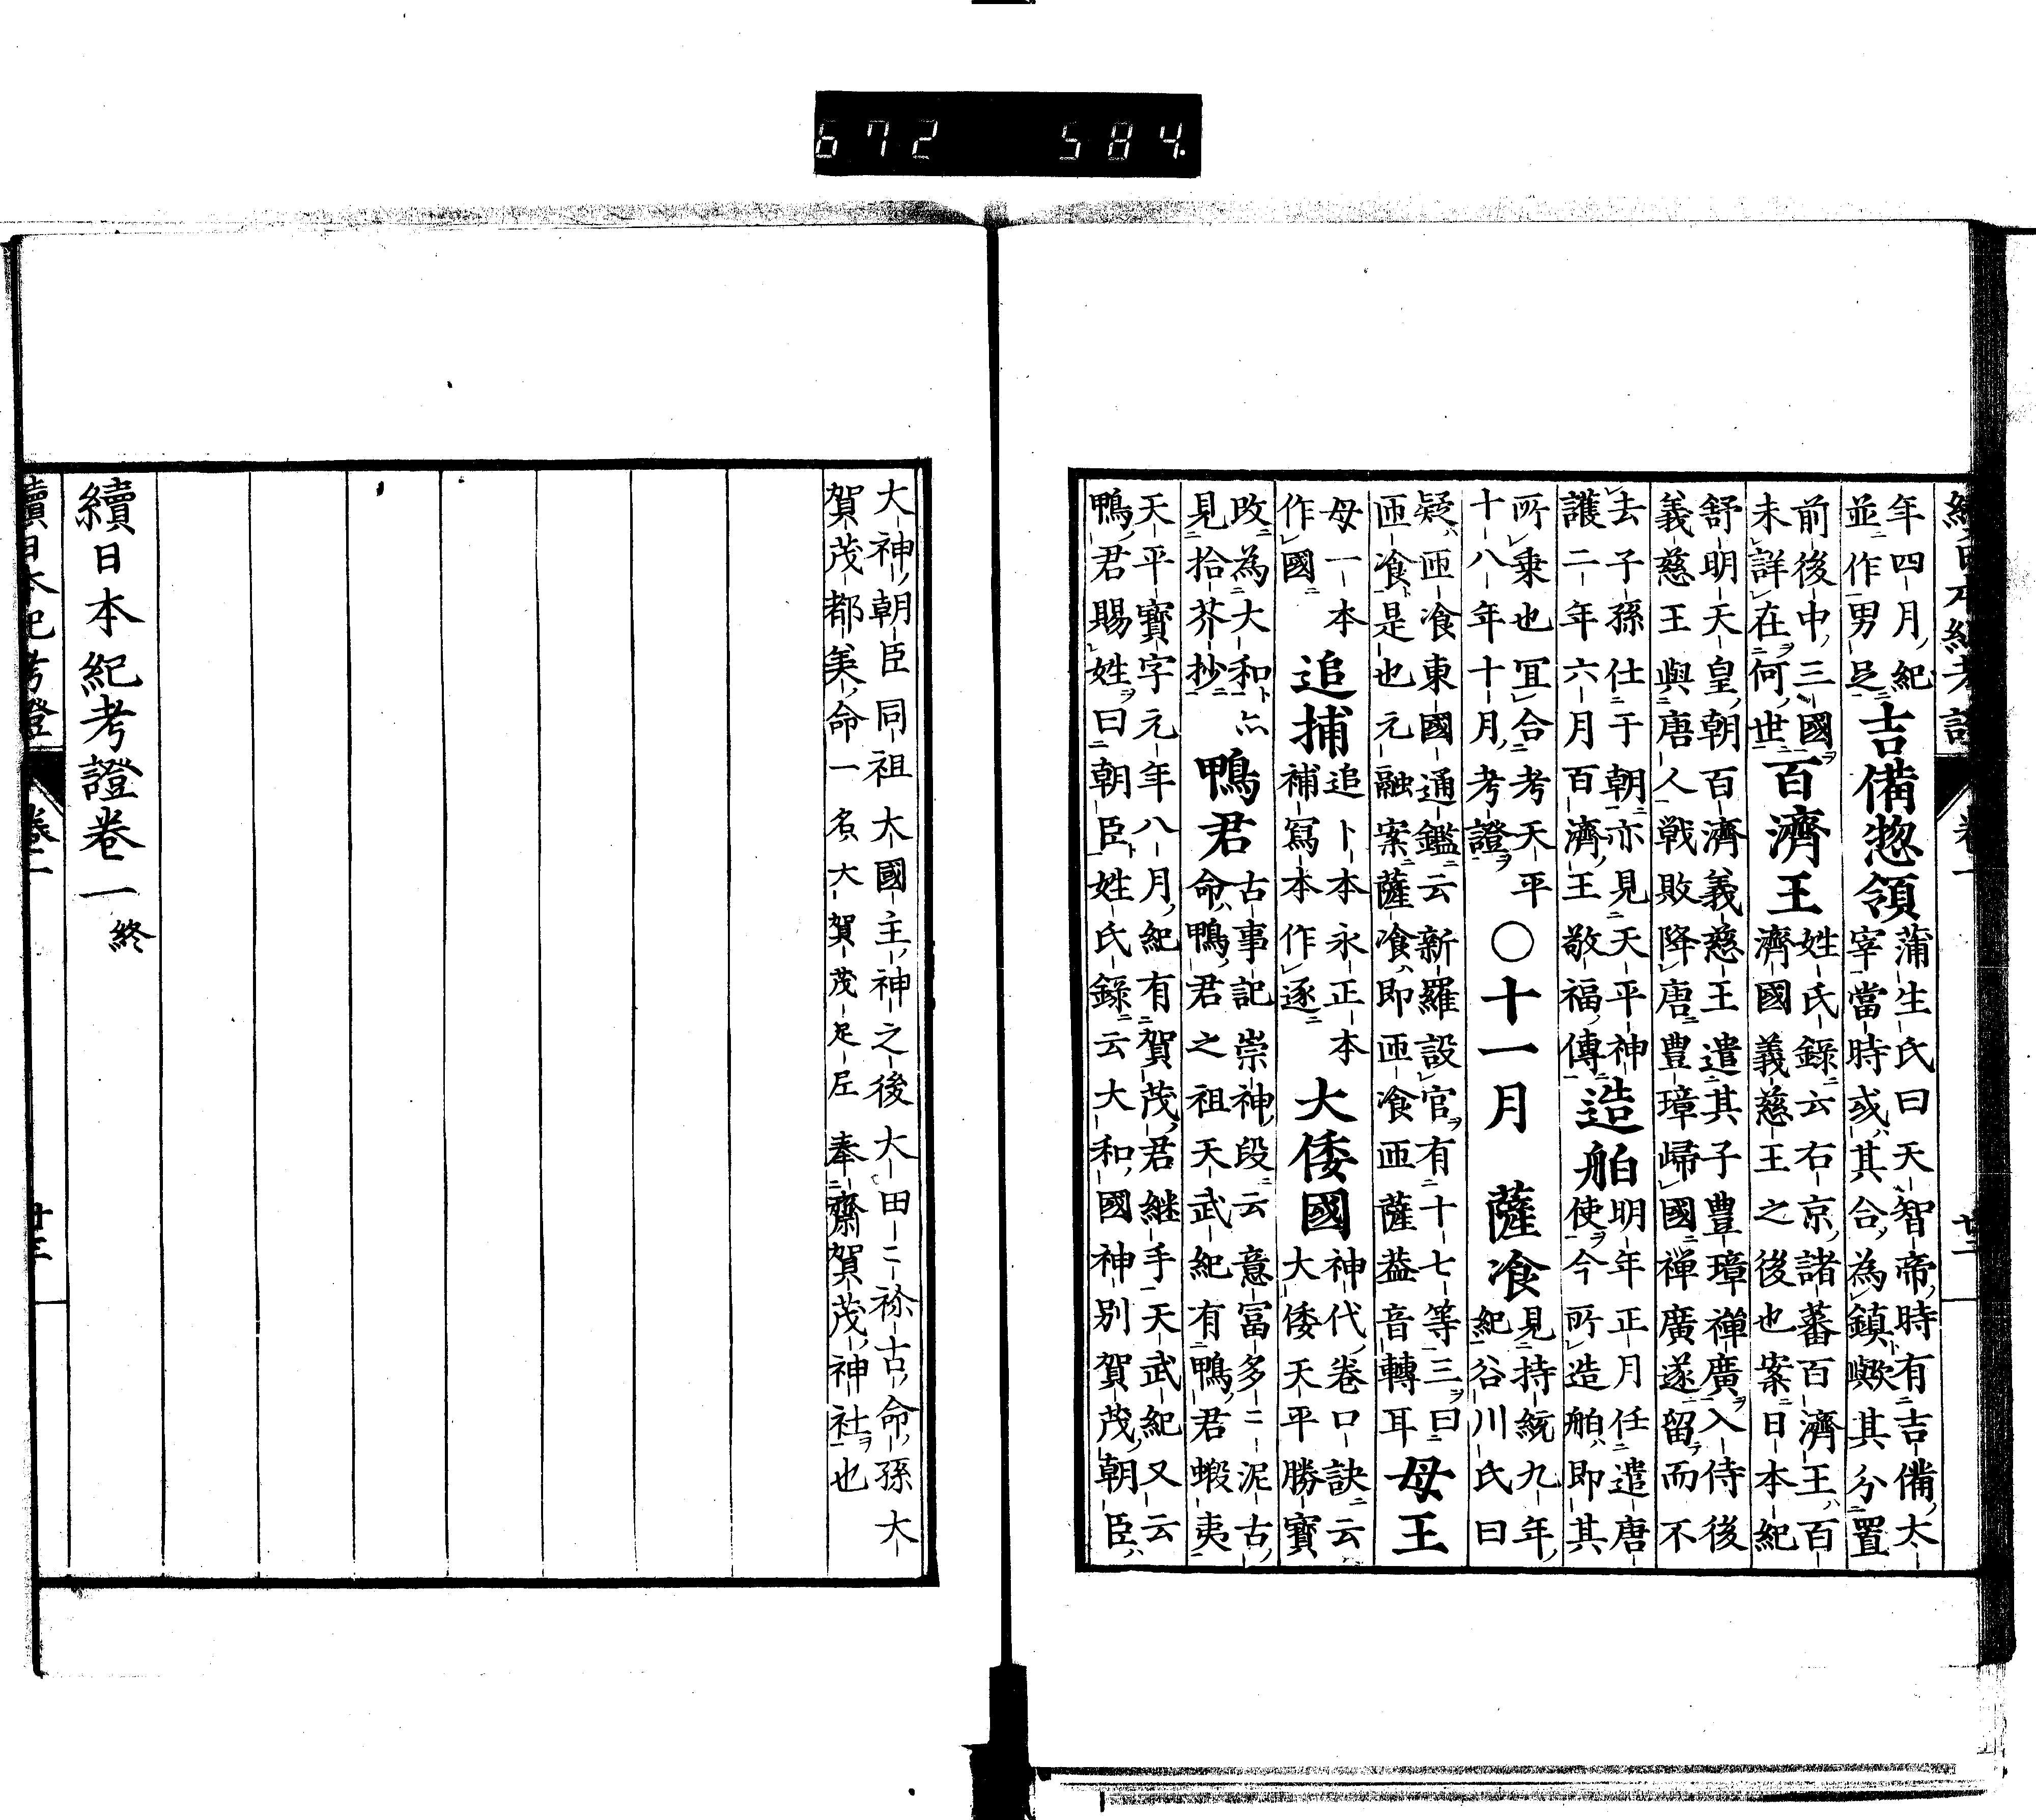 續日本紀考證 卷一 廿二
年四月紀
並作男足
吉備惣領
蒲生氏曰天智帝時有吉備太
宰當時或其合為鎮歟其分置
前後中三國
未詳在何世
百濟王
姓氏錄云右京諸蕃百濟王百
濟國義慈王之後也案日本紀
舒明天皇朝百濟義慈王遣其子豊璋禅廣入侍後
義慈王與唐人戦敗降唐豊璋歸國禅廣遂留而不
去子孫仕于朝亦見天平神
護二年六月百濟王敬福傳
造舶
明年正月任遣唐
使今所造舶即其
所乗也冝合考天平
十八年十月考證
○十一月 薩飡
見持統九年
紀谷川氏曰
疑匝飡東國通鑑云新羅設官有十七等三曰
匝飡是也元融案薩飡即匝飡匝薩葢音轉耳
母王
母一本
作國
追捕
追卜本永正本
補寫本作逐
大倭國
神代卷口訣云
大倭天平勝寳
改為大和亦
見拾芥抄
鴨君
古事記崇神段云意冨多〻泥古
命鴨君之祖天武紀有鴨君蝦夷
天平寳字元年八月紀有賀茂君継手天武紀又云
鴨君賜姓曰朝臣姓氏錄云大和國神別賀茂朝臣
大神朝臣同祖大國主神之後大田〻祢古命孫大
賀茂都美命一名大賀茂足尼奉齋賀茂神社也
續日本紀考證卷一終
續日本紀考證 卷一 廿三
672 584